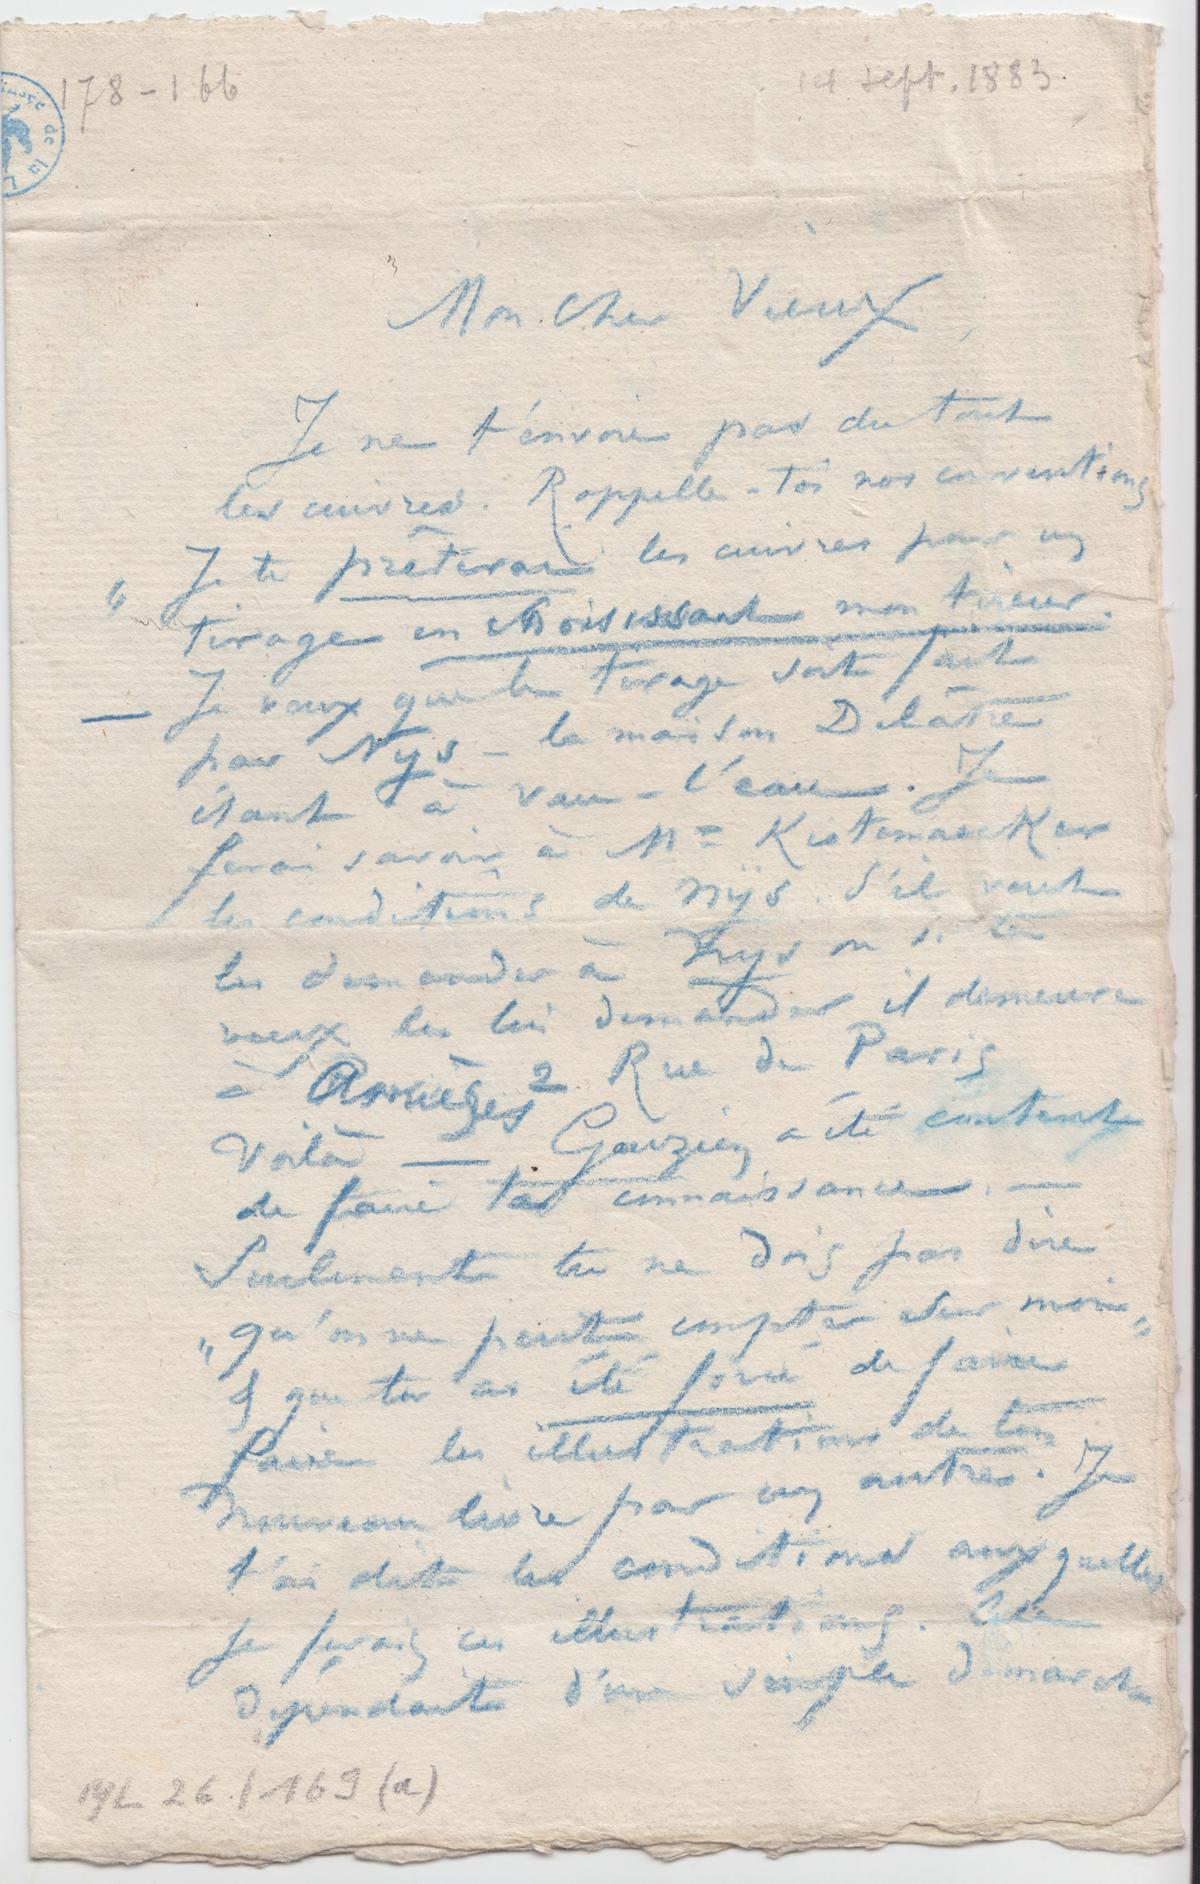 178-166
14 sept. 1883
Musée de la
Mon Cher Vieux,
Je ne t'envoie pas du tout
les cuivres. Rappelle-toi nos conventions
" Je te prêterai les cuivres pour un
tirage en choisissant mon tireur.
— Je veux que le tirage soit fait
par Nÿs – la maison Delâtre
étant à vau-l'eau. Je
ferai savoir à Mr Kistemaecker
les conditions de Nÿs. S'il veut
les demander à Nys ou si tu
veux les lui demander il demeure
à Asnières 2 Rue de Paris
Voilà — Gouzien a été content
de faire ta connaissance. —
Seulement tu ne dois pas dire
" qu'on ne peut compter sur moi "
& que tu as été forcé de faire
faire les illustrations de ton
nouveau livre par un autre. Je
t'ai dit les conditions auxquelles
je ferais ces illustrations. Cela
dépendait d'une simple démarche
ML 26/169 (a)